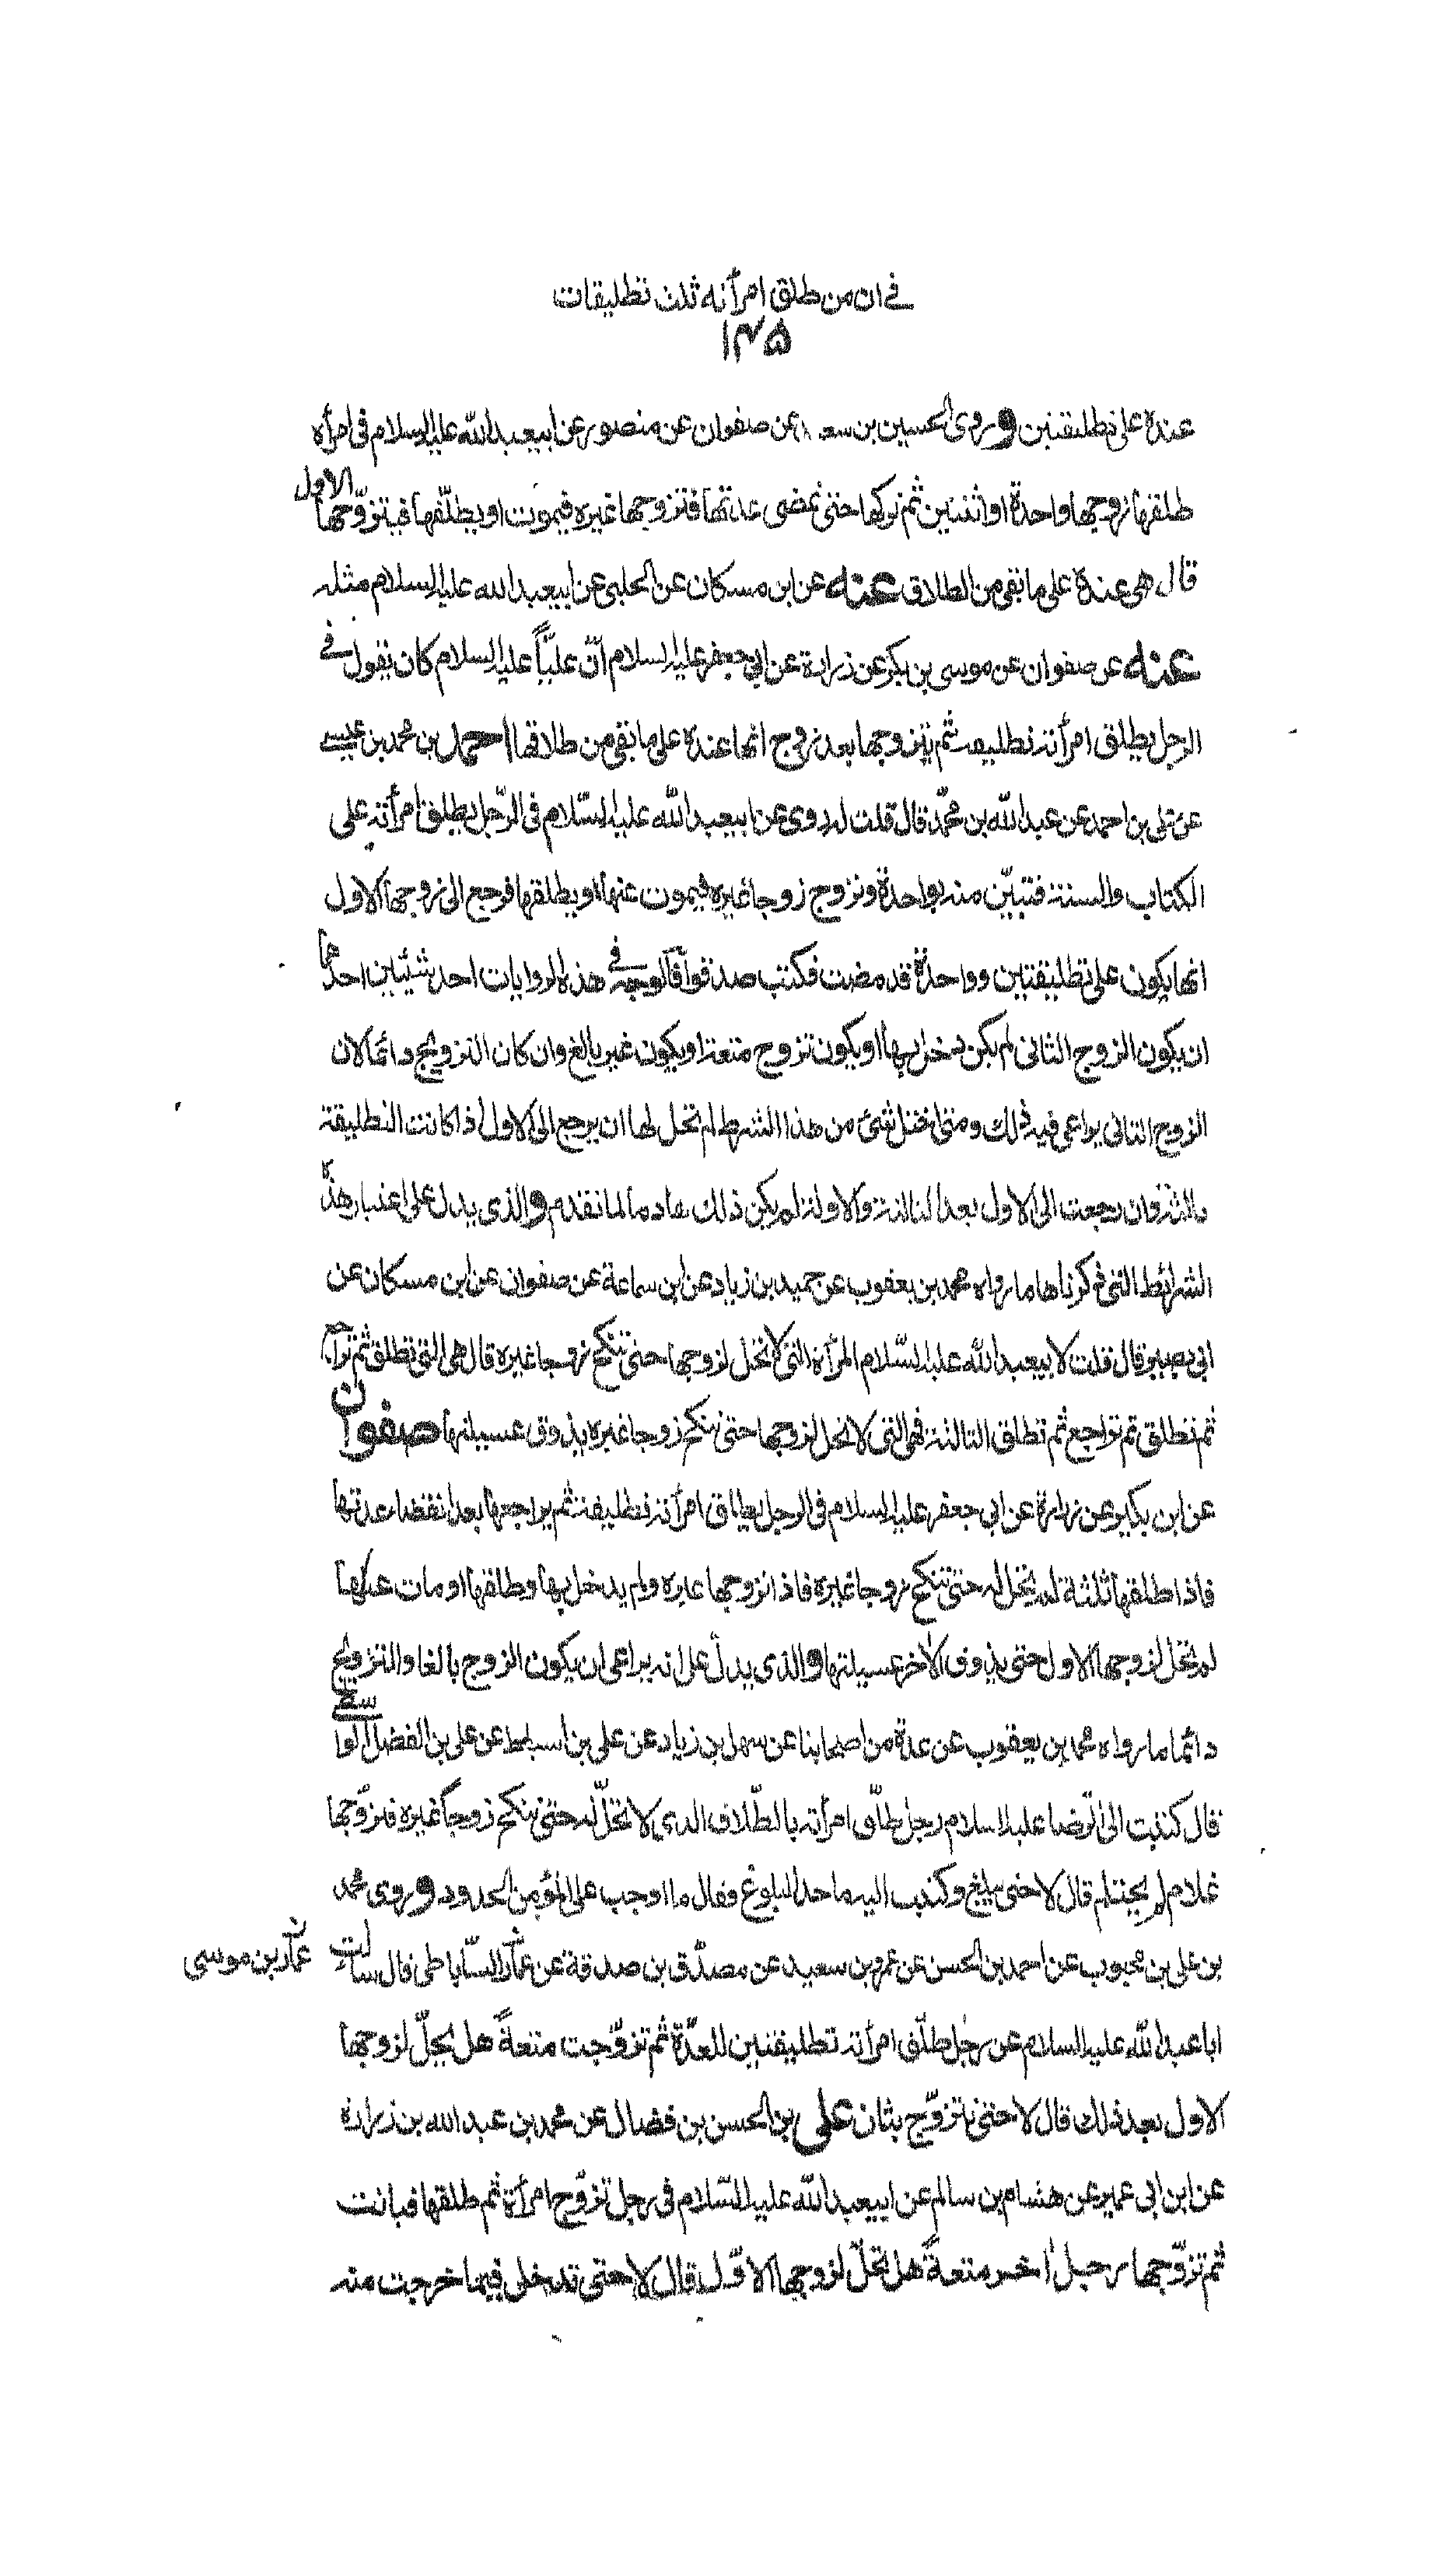 في ان من طلق امرأته ثلث تطليقات
١٤٥
عنده على تطليقتين وروى الحسين بن سعيد عن صفوان عن منصور عن ابيعبدالله عليه السلام في امرأة
طلقها زوجها واحدة او اثنتين ثم تركها حتى تمضى عدتها فتزوجها غيره فيموت او يطلّقها فيتزوّجها الاول
قال هي عنده على ما بقي من الطلاق عنه عن ابن مسكان عن الحلبي عن ابيعبدالله عليه السلام مثله
عنه عن صفوان عن موسى بن بكر عن زرارة عن ابي جعفر عليه السلام انّ عليّاً عليه السلام كان يقول في
الرجل يطلق امرأته تطليقة ثم يتزوجها بعد زوج انها عنده على ما بقي من طلاقها احمد بن محمد بن عيسى
عن علي بن احمد عن عبدالله بن محمّد قال قلت له روى عن ابيعبدالله عليه السّلام في الرّجل يطلق امرأته على
الكتاب والسنة فتبيّن منه بواحدة وتزوج زوجا غيره فيموت عنها او يطلقها فرجع الى زوجها الاول
انها يكون على تطليقتين وواحدة قد مضت فكتب صدقوا فالوجه في هذه الروايات احد شيئين احدهما
ان يكون الزوج الثاني لم يكن دخل بها او يكون تزوج متعة او يكون غير بالغ وان كان التزويج دائما لان
الزوج الثاني يراعى فيه ذلك ومتى اختل شئ من هذا الشرط لم تحل لها ان يرجع الى الاول اذا كانت التطليقة
ثالثة وان رجعت الى الاول بعد الثالثة والاولة لم يكن ذلك هادما لما تقدم والذى يدل على اعتبار هذه
الشرائط التى ذكرناها ما رواه محمد بن يعقوب عن حميد بن زياد عن ابن سماعة عن صفوان عن ابن مسكان عن
ابي بصير قال قلت لابيعبدالله عليه السّلام المرأة التى لا تحل لزوجها حتى تنكح زوجا غيره قال هي التى تطلق ثم تراجع
ثم تطلق ثم تراجع ثم تطلق الثالثة فهي التى لا تحل لزوجها حتى تنكح زوجا غيره يذوق عسيلتها صفوان
عن ابن بكير عن زرارة عن ابي جعفر عليه السلام في الرجل يطلق امرأته تطليقة ثم يراجعها بعد انقضاء عدتها
فاذا طلقها ثلثة لم تحل له حتى تنكح زوجا غيره فاذا تزوجها غيره ولم يدخل بها وطلقها او مات عنها
لم تحل لزوجها الاول حتى يذوق الاخر عسيلتها والذى يدلّ على انه يراعى ان يكون الزوج بالغا والتزويج
دائما ما رواه محمد بن يعقوب عن عدة من اصحابنا عن سهل بن زياد عن علي بن اسباط عن علي بن الفضل الواسطي
قال كتبت الى الرّضا عليه السلام رجل طلّق امرأته بالطّلاق الذى لا تحلّ له حتى تنكح زوجاً غيره فتزوّجها
غلام لم يحتلم قال لا حتى يبلغ وكتبت اليه ما حد البلوغ فقال ما اوجب على المؤمن الحدود وروى محمد
بن علي بن محبوب عن احمد بن الحسن عن عمرو بن سعيد عن مصدّق بن صدقة عن عمّار السّاباطى قال سألت
عمّار بن موسى
ابا عبدالله عليه السلام عن رجل طلّق امرأته تطليقتين للعدّة ثم تزوّجت متعةً هل تحلّ لزوجها
الاول بعد ذلك قال لا حتى تتزوّج بثان علي بن الحسن بن فضال عن محمد بن عبدالله بن زرارة
عن ابن ابي عمير عن هشام بن سالم عن ابيعبدالله عليه السّلام في رجل تزوّج امرأة ثم طلقها فبانت
ثم تزوّجها رجل آخر متعةً هل تحلّ لزوجها الاوّل قال لا حتى تدخل فيما خرجت منه